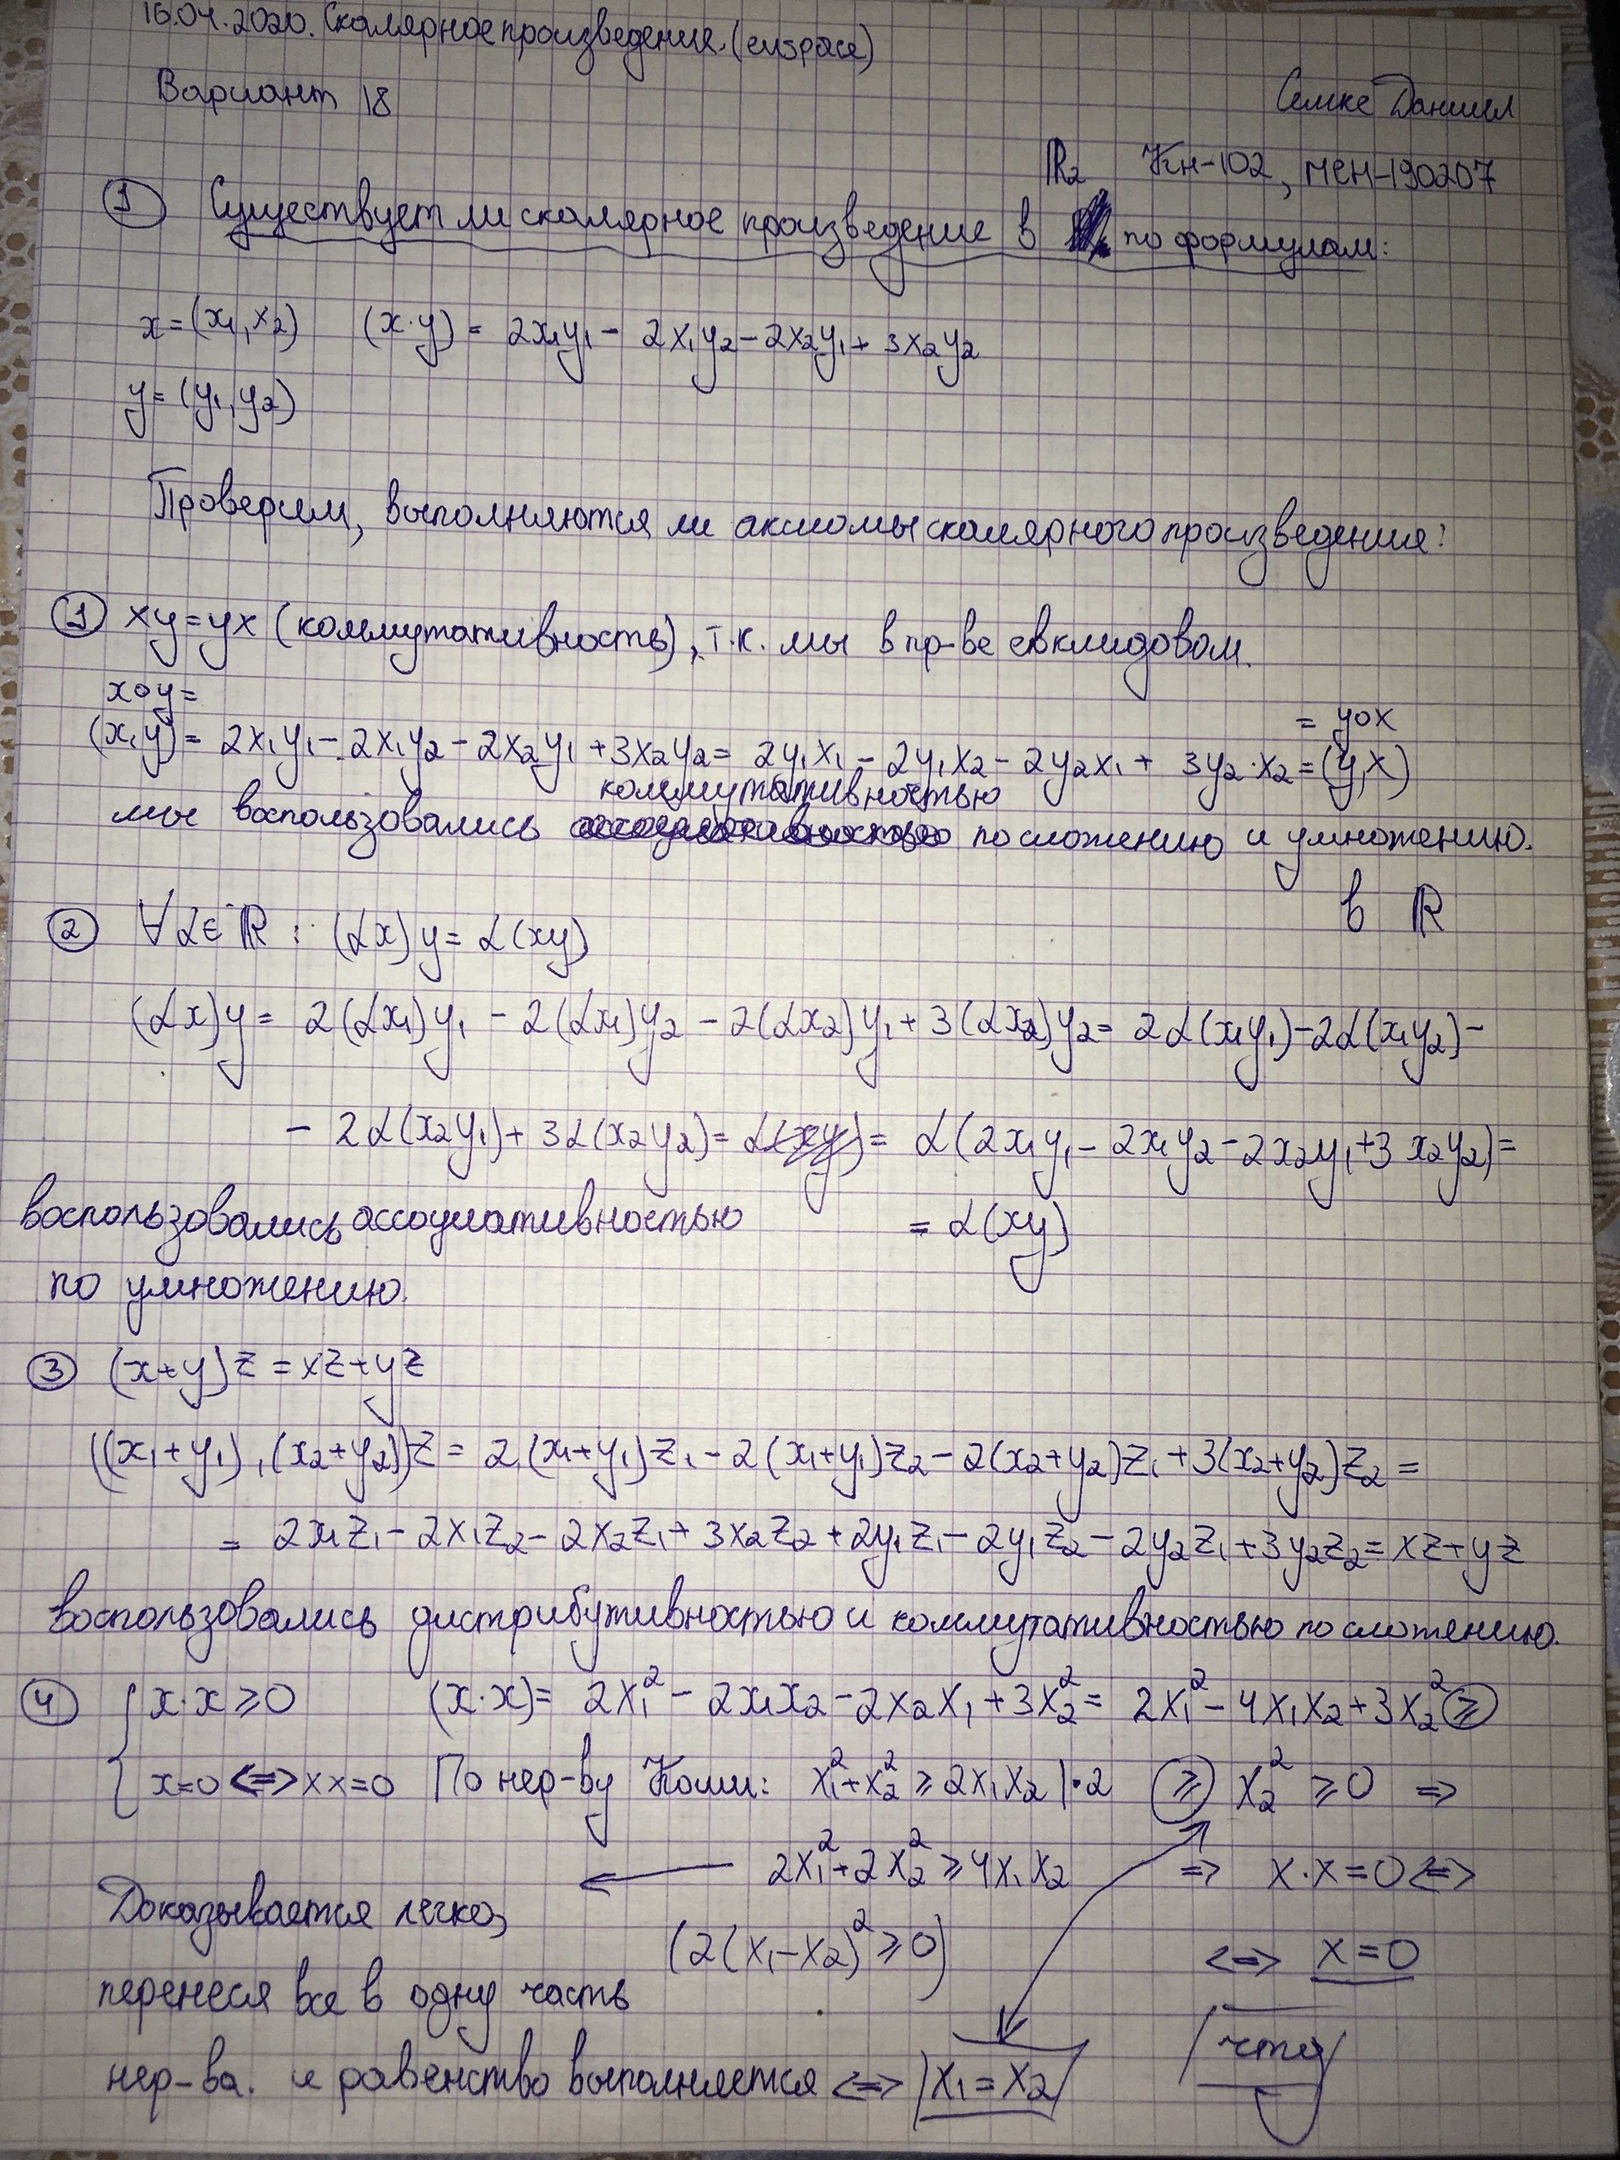 16.04.2020. Скалярное произведение. (euspace)
Вариант 18
Семке Даниил
Кн-102, МЕН-190207
① Существует ли скалярное произведение в ℝ₂ по формулам:
x=(x₁,x₂) (x·y) = 2x₁y₁ - 2x₁y₂ - 2x₂y₁ + 3x₂y₂
y=(y₁,y₂)
Проверим, выполняются ли аксиомы скалярного произведения:
① xy=yx (коммутативность), т.к. мы в пр-ве евклидовом.
x∘y=
= y∘x
(x,y)= 2x₁y₁ - 2x₁y₂ - 2x₂y₁ + 3x₂y₂ = 2y₁x₁ - 2y₁x₂ - 2y₂x₁ + 3y₂·x₂ = (y,x)
мы воспользовались коммутативностью по сложению и умножению.
в ℝ
② ∀α∈ℝ : (αx)y = α(xy)
(αx)y = 2(αx₁)y₁ - 2(αx₁)y₂ - 2(αx₂)y₁ + 3(αx₂)y₂ = 2α(x₁y₁) - 2α(x₁y₂) -
- 2α(x₂y₁) + 3α(x₂y₂) = α(xy) = α(2x₁y₁ - 2x₁y₂ - 2x₂y₁ + 3x₂y₂) =
воспользовались ассоциативностью = α(xy)
по умножению.
③ (x+y)z = xz+yz
((x₁+y₁),(x₂+y₂))z = 2(x₁+y₁)z₁ - 2(x₁+y₁)z₂ - 2(x₂+y₂)z₁ + 3(x₂+y₂)z₂ =
= 2x₁z₁ - 2x₁z₂ - 2x₂z₁ + 3x₂z₂ + 2y₁z₁ - 2y₁z₂ - 2y₂z₁ + 3y₂z₂ = xz+yz
воспользовались дистрибутивностью и коммутативностью по сложению.
④ { x·x ⩾ 0 (x·x) = 2x₁² - 2x₁x₂ - 2x₂x₁ + 3x₂² = 2x₁² - 4x₁x₂ + 3x₂² ⩾
x=0 <=> xx=0 По нер-ву Коши: x₁²+x₂² ⩾ 2x₁x₂ |·2 ⩾ x₂² ⩾ 0 =>
2x₁²+2x₂² ⩾ 4x₁x₂ => x·x=0 <=>
Доказывается легко,
(2(x₁-x₂)² ⩾ 0) <=> x=0
перенеся все в одну часть
чтд
нер-ва. и равенство выполняется <=> x₁=x₂